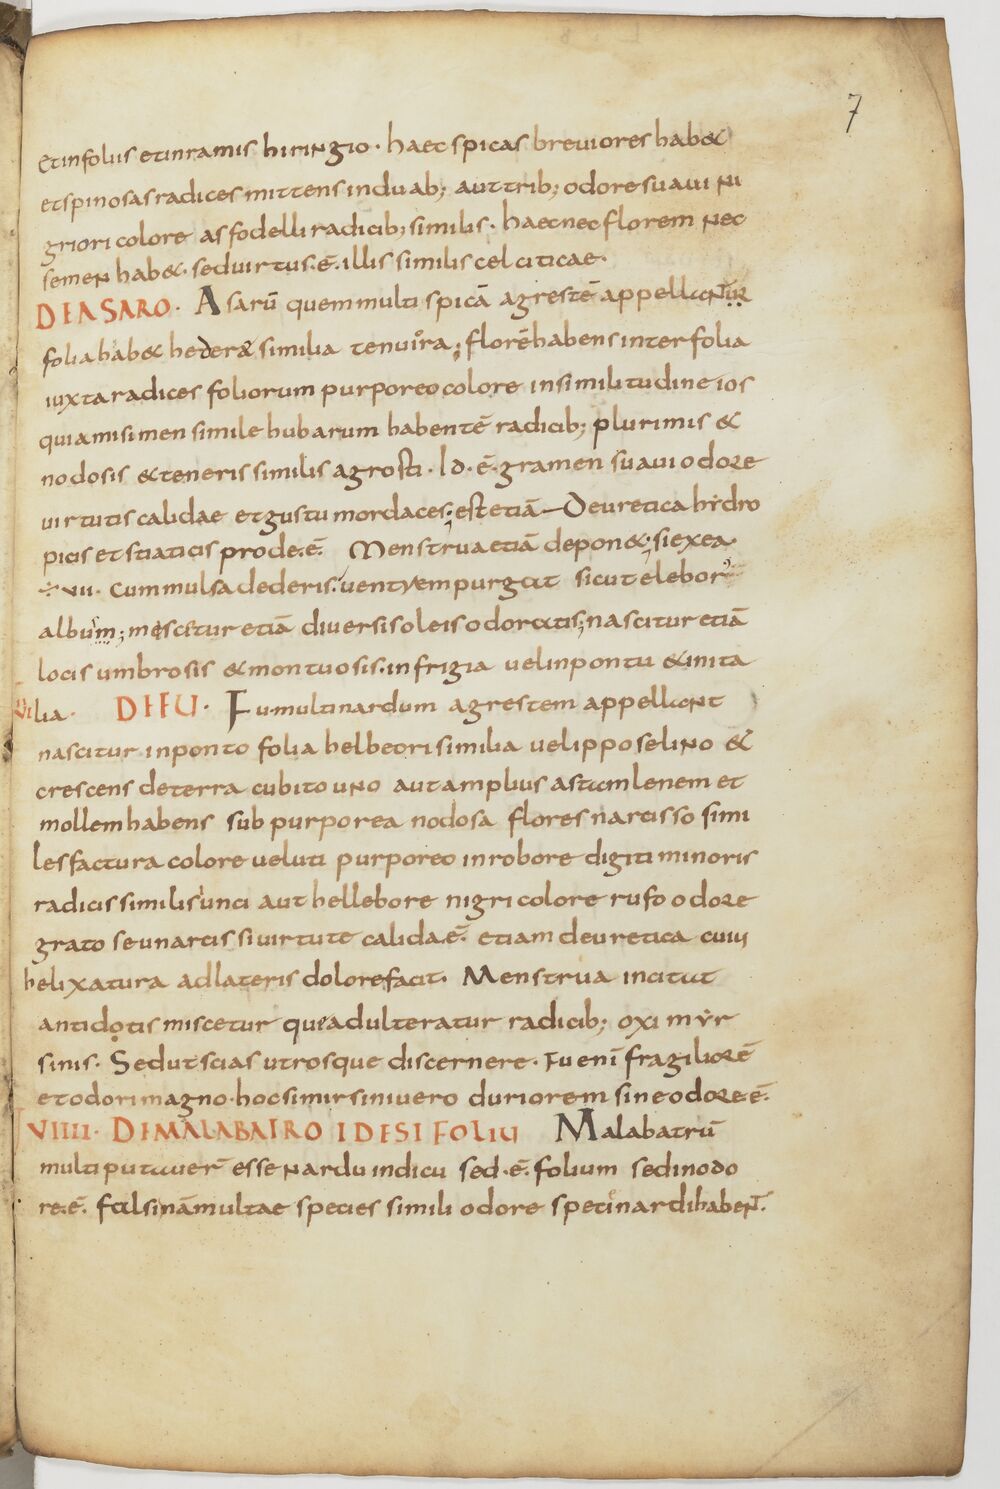 7
etinfoliis etinramis hiringio · haec spicas breuiores hab&
etspinosasradices mittens induab; auttrib; odoresuaui ni
griori colore asfodelli radicib; similis · haecnecflorem nec
semen hab& · seduirtus · ē · illis similis cel citicae ·
DEASARO · Asarū quem multi spicā agrestē appellant
folia hab& heder& similia tenuiora ; florēhabens inter folia
iuxta radices foliorum purporeo colore insimilitudine ios
quiamisi men simile hubarum habentē radicib; plurimis &
nodosis & teneris similis agrosti · Id · ē · gramen suaui odore
uirtutis calidae et gustu mordaces ; est etiā Deuretica hydro
picis et stiaticis prode · ē · Menstrua etiā depon& ; si exea
÷ vii · cum mulsa dederis · uentrem purgat sicut elebor
album ; miscetur etiā diuersis oleis odoratis ; nascitur etiā
locis umbrosis & montuosis · infrigia uel inpontu & inita
lia · DEFU · Fu · multi nardum agrestem appellant
nascitur inponto folia helbeori similia uel ipposelino &
crescens deterra cubito uno aut amplius astam lenem et
mollem habens sub purporea nodosa flores narcisso simi
les factura colore ueluti purporeo inrobore digiti minoris
radicis similis iunci aut hellebore nigri colore rufo odore
grato seu narcissi uirtute calida · ē · etiam deuretica cuii
helixatura adlateris dolore facit · Menstrua incitat
antidotis miscetur que adulteratur radicib; oxi myr
sinis · Sed ut scias utrosque discernere · Fu enī fragiliorē
et odori magno · hoc simirsini uero duriorem sine odore · ē ·
VIIII · DEMALABATRO IDESI FOLIU Malabatrū
multi putauer̄ esse nardu indicu sed · ē · folium sed inodo
re · ē · falsi nā multae species simili odore speci nardi haben̄ ·